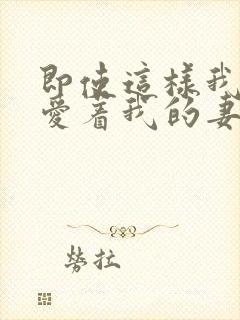 即使這樣我
愛著我的妻
勞拉